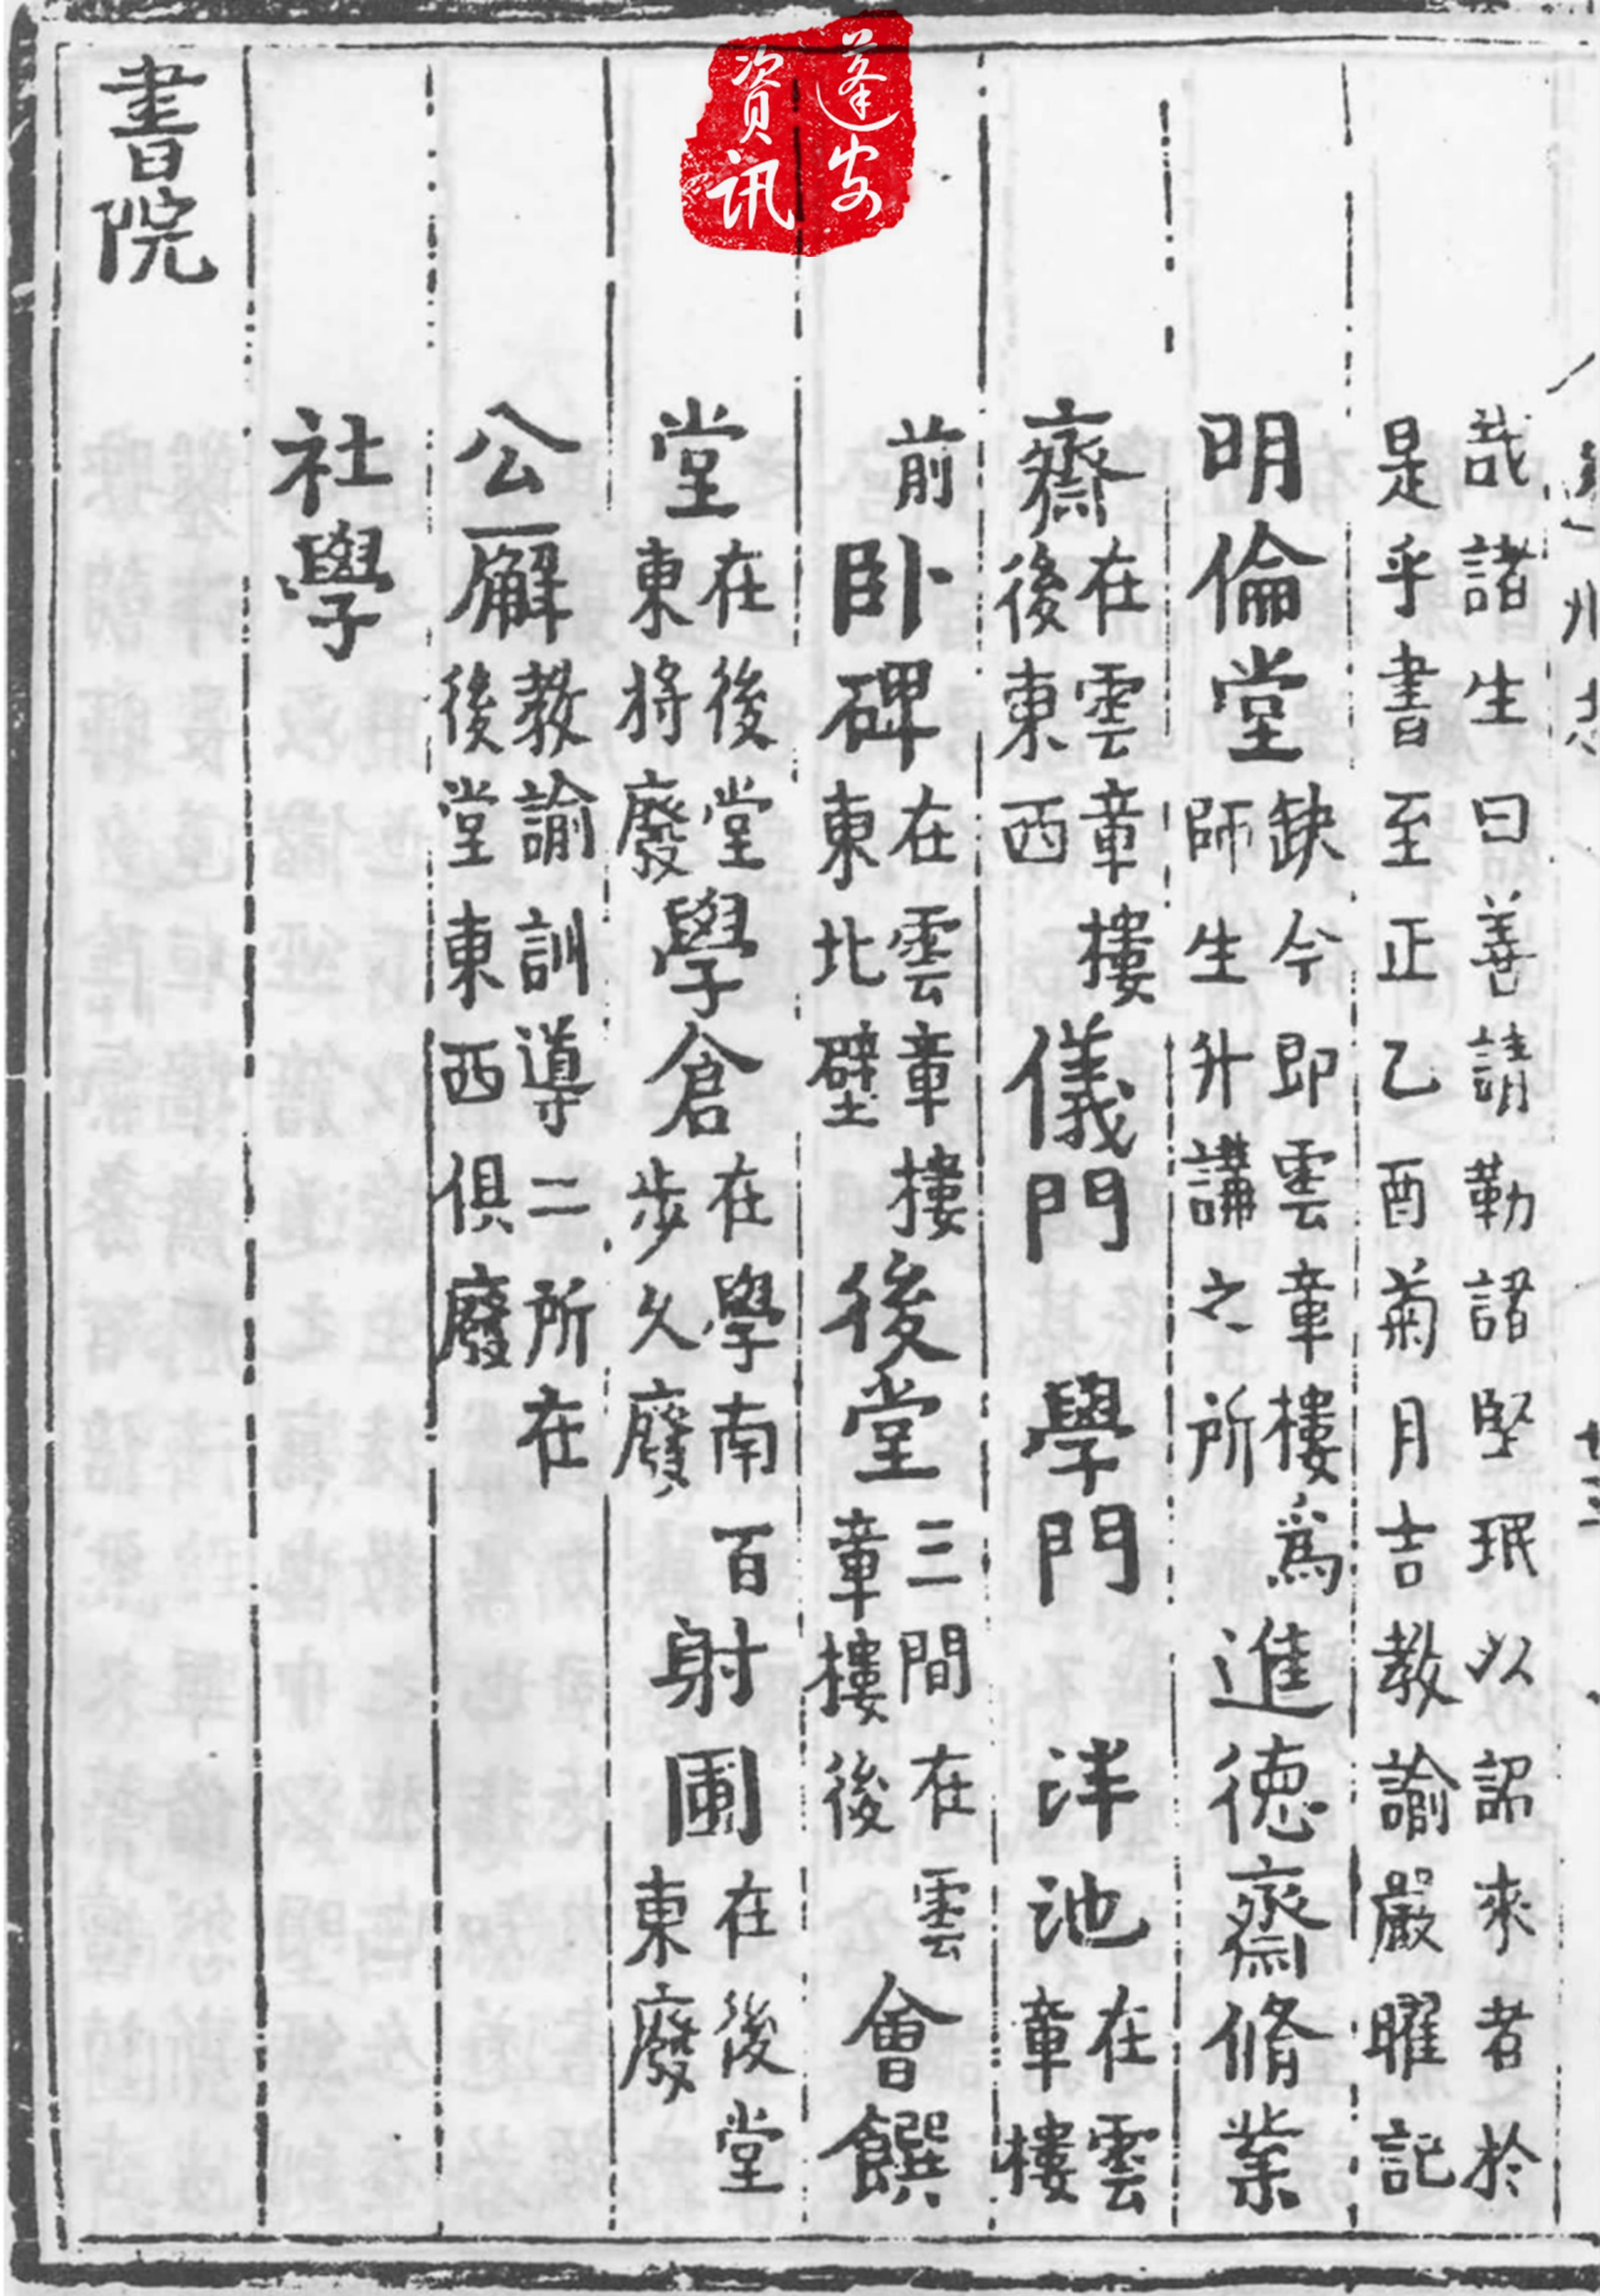 蓬安
资讯
哉諸生曰善請勒諸堅珉以詔來者於
是乎書至正乙酉菊月吉教諭嚴曜記
明倫堂缺今即雲章樓爲師生升講之所進德齋脩業
齋在雲章樓後東西儀門 學門 泮池在雲章樓
前卧碑在雲章樓東北壁後堂三間在雲章樓後會饌
堂在後堂東將廢學倉在學南百步久廢射圃在後堂東廢
公廨教諭訓導二所在後堂東西俱廢
社學
書院